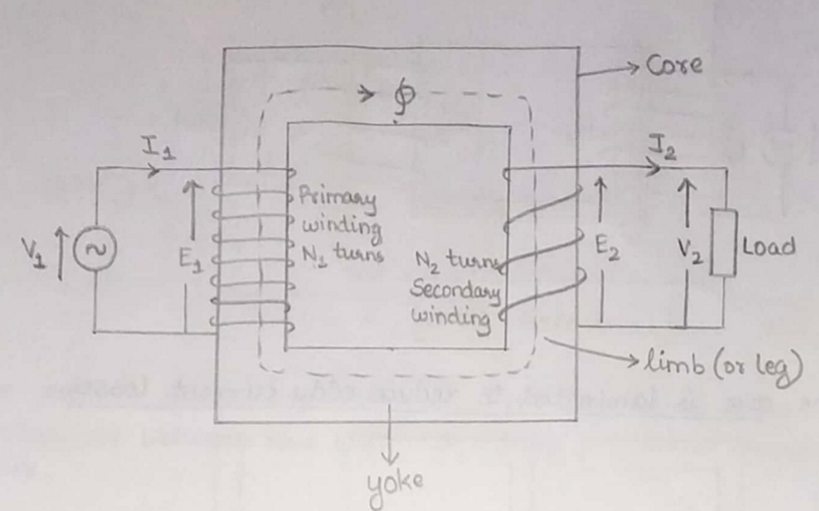 Core
ϕ
I1
I2
Primary
winding
N1 turns
V1
~
E1
N2 turns
Secondary
winding
E2
V2
Load
limb (or leg)
yoke